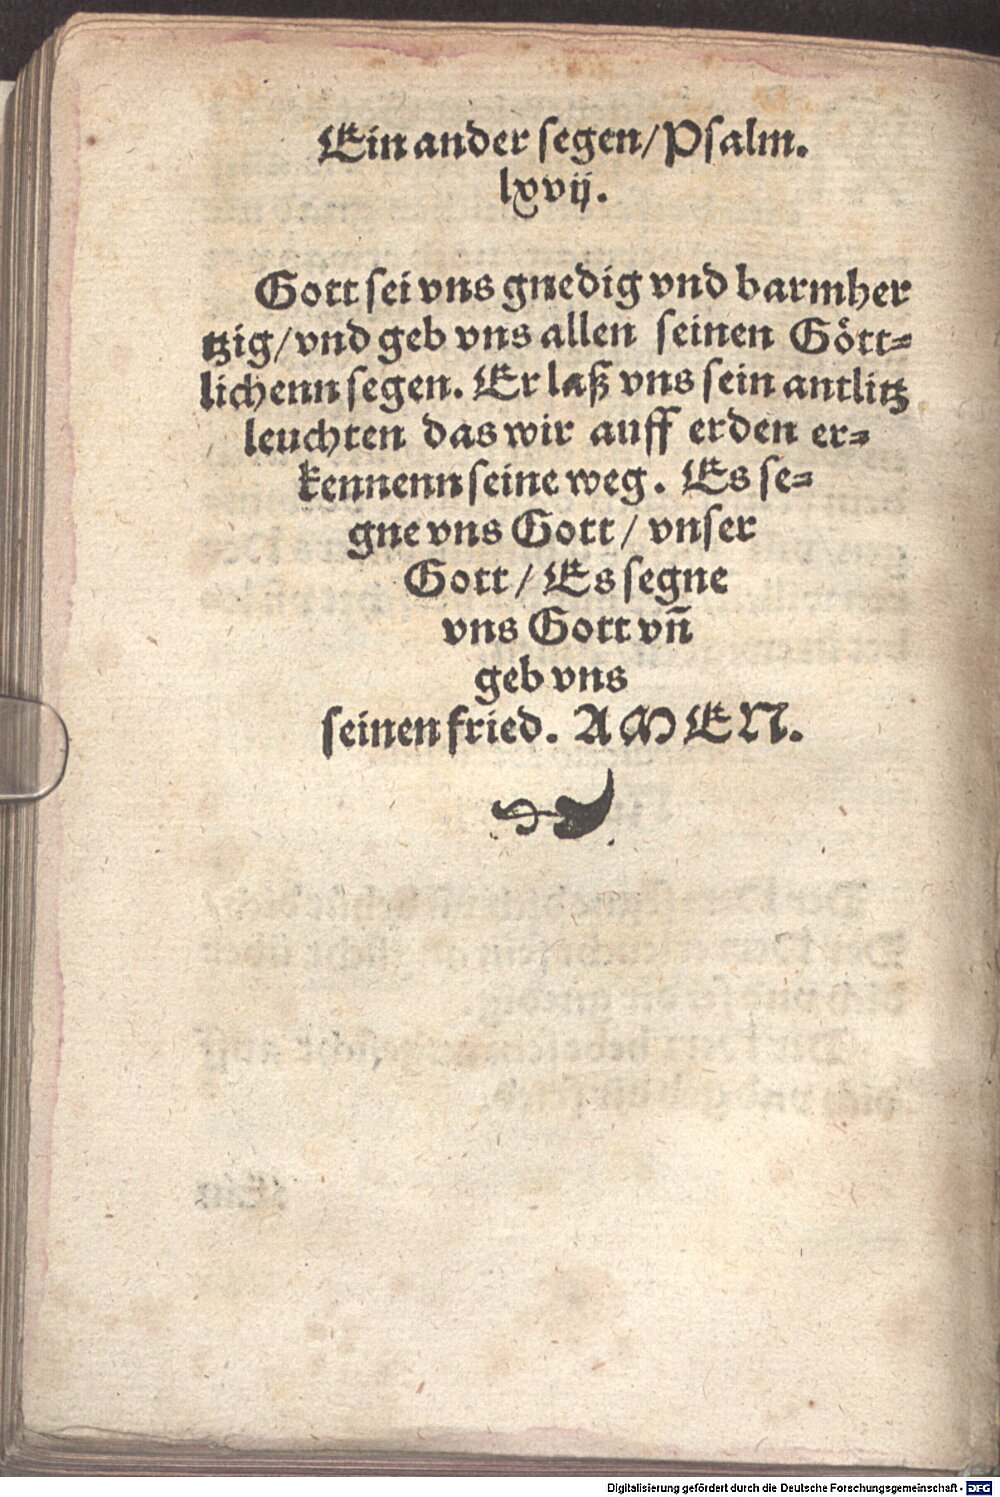 Ein ander segen/Psalm.
lxvij.
Gott sei vns gnedig vnd barmher
tzig/vnd geb vns allen seinen Gött⸗
lichenn segen. Er laß vns sein antlitz
leuchten das wir auff erden er⸗
kennenn seine weg. Es se⸗
gne vns Gott / vnser
Gott / Es segne
vns Gott vñ
geb vns
seinen fried. AMEN.
Digitalisierung gefördert durch die Deutsche Forschungsgemeinschaft - DFG